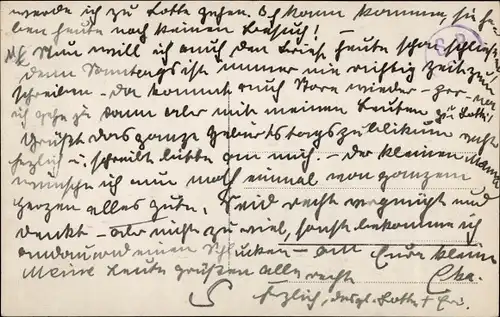 werde ich zu Lotte gehen. Ich kann kommen, sie ha-
ben heute noch keinen Besuch! —
Nun will ich auch den Brief heute schon schließen
denn Sonntags ist immer nie richtig Zeit zum
schreiben — da kommt auch wieder —
ich gehe ja dann aber mit meinen Leuten zu Lotte!
Grüßt das ganze Geburtstagspublikum recht
herzlich u. schreibt bitte an mich. — Der kleinen
wünsche ich nun noch einmal von ganzem
Herzen alles Gute. Seid recht vergnügt und
denkt — aber nicht zu viel, sonst bekomme ich
andauernd einen Schlucken — an Eure kleine
Meine Leute grüßen alle recht
herzlich, desgl. Lotte +